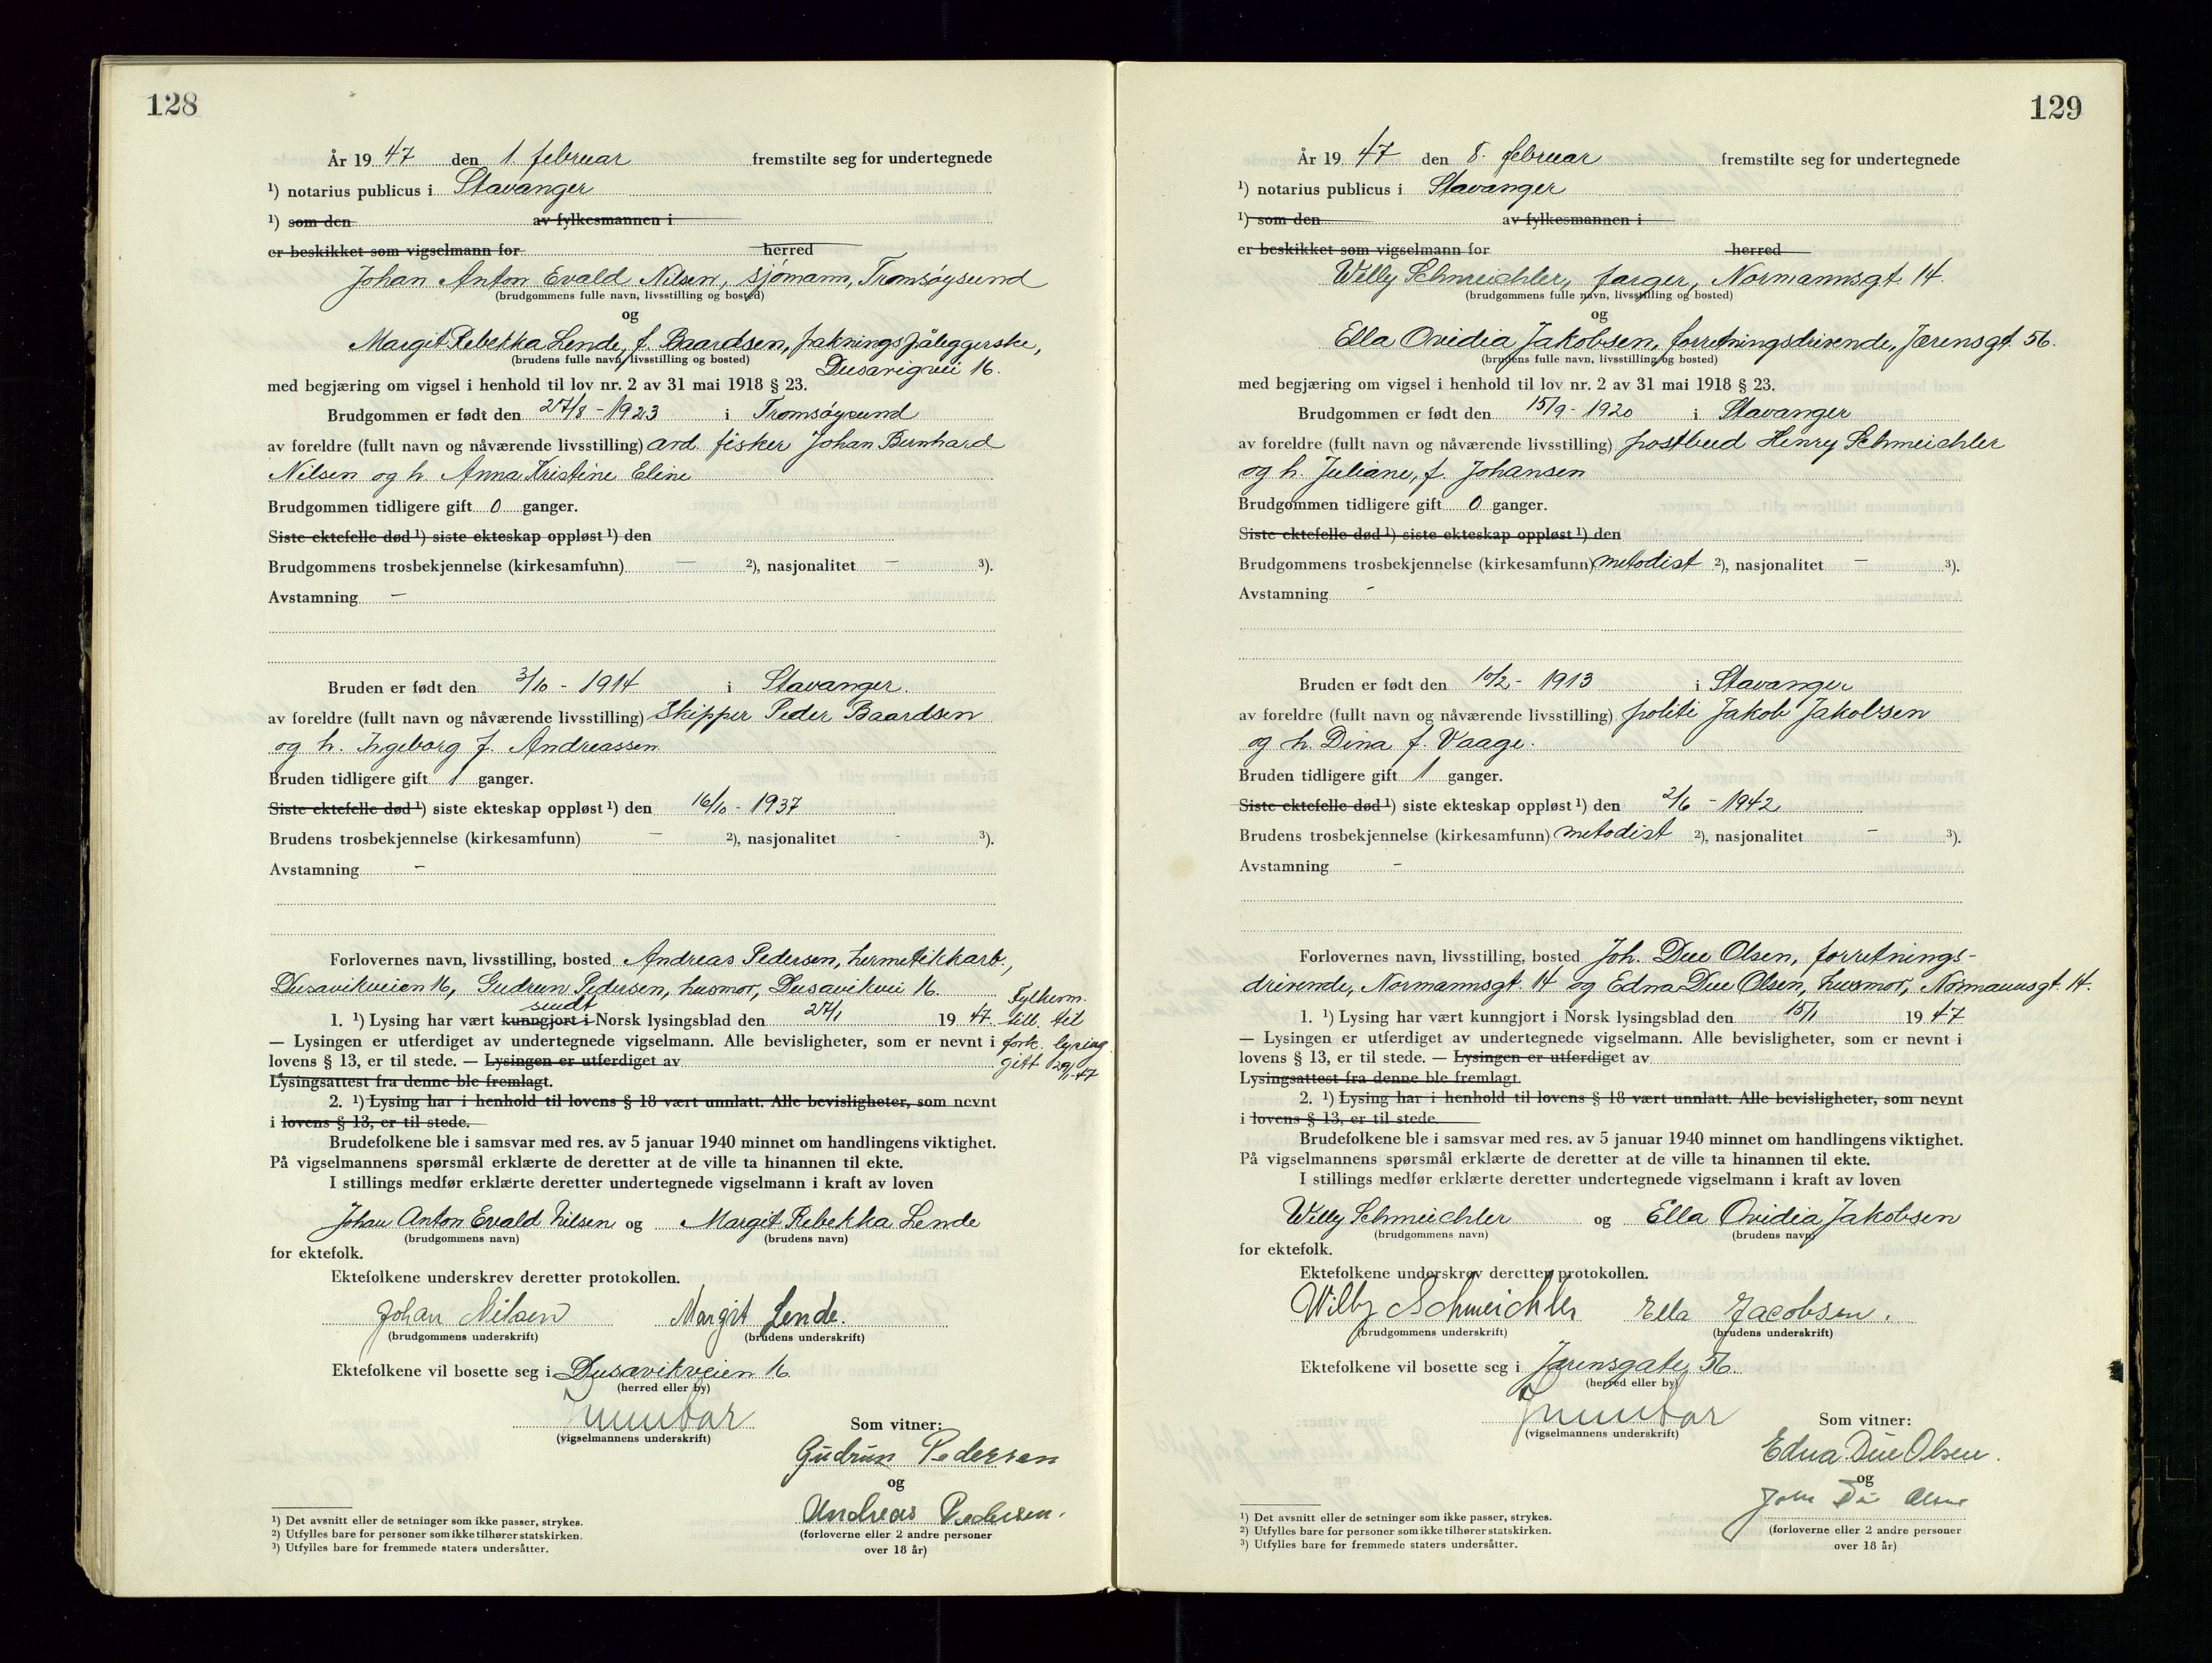 128
År 1947 den 1. februar fremstilte seg for undertegnede
¹) notarius publicus i Stavanger
¹) som den av fylkesmannen i
er beskikket som vigselmann for herred
Johan Anton Evald Nilsen, sjømann, Tromsøysund
(brudgommens fulle navn, livsstilling og bosted)
og
Margit Rebekka Lende, f. Baardsen, pakningspåleggerske,
(brudens fulle navn, livsstilling og bosted) Dusavigvei 16.
med begjæring om vigsel i henhold til lov nr. 2 av 31 mai 1918 § 23.
Brudgommen er født den 27/8 - 1923 i Tromsøysund
av foreldre (fullt navn og nåværende livsstilling) avd. fisker Johan Bernhard
Nilsen og h. Anna Kristine Eline
Brudgommen tidligere gift 0 ganger.
Siste ektefelle død ¹) siste ekteskap oppløst ¹) den
Brudgommens trosbekjennelse (kirkesamfunn) — ²), nasjonalitet — ³).
Avstamning —
Bruden er født den 3/10 - 1914 i Stavanger.
av foreldre (fullt navn og nåværende livsstilling) Skipper Peder Baardsen
og h. Ingeborg f. Andreassen
Bruden tidligere gift 1 ganger.
Siste ektefelle død ¹) siste ekteskap oppløst ¹) den 16/10 - 1937
Brudens trosbekjennelse (kirkesamfunn) — ²), nasjonalitet - ³).
Avstamning —
Forlovernes navn, livsstilling, bosted Andreas Pedersen, hermetikkarb.,
Dusavikveien 16, Gudrun Pedersen, husmor, Dusavikvei 16.
sendt
1. ¹) Lysing har vært kunngjort i Norsk lysingsblad den 27/1 1947.
— Lysingen er utferdiget av undertegnede vigselmann. Alle bevisligheter, som er nevnt i
lovens § 13, er til stede. — Lysingen er utferdiget av
Fylkesm.
till. til
fork. lysing
gitt 29/1-47
Lysingsattest fra denne ble fremlagt.
2. ¹) Lysing har i henhold til lovens § 18 vært unnlatt. Alle bevisligheter, som nevnt
i lovens § 13, er til stede.
Brudefolkene ble i samsvar med res. av 5 januar 1940 minnet om handlingens viktighet.
På vigselmannens spørsmål erklærte de deretter at de ville ta hinannen til ekte.
I stillings medfør erklærte deretter undertegnede vigselmann i kraft av loven
Johan Anton Evald Nilsen og Margit Rebekka Lende
(brudgommens navn) (brudens navn)
for ektefolk.
Ektefolkene underskrev deretter protokollen.
Johan Nilsen Margit Lende.
(brudgommens underskrift) (brudens underskrift)
Ektefolkene vil bosette seg i Dusavikveien 16
(herred eller by)
(vigselmannens underskrift)
Som vitner:
Gudrun Pedersen
og
Andreas Pedersen.
(forloverne eller 2 andre personer
over 18 år)
¹) Det avsnitt eller de setninger som ikke passer, strykes.
²) Utfylles bare for personer som ikke tilhører statskirken.
³) Utfylles bare for fremmede staters undersåtter.
129
År 1947 den 8. februar fremstilte seg for undertegnede
¹) notarius publicus i Stavanger
¹) som den av fylkesmannen i
er beskikket som vigselmann for herred
Willy Schmeichler, farger, Normannsgt. 14.
(brudgommens fulle navn, livsstilling og bosted)
og
Ella Ovidia Jakobsen, forretningsdrivende, Jærensgt. 56.
(brudens fulle navn, livsstilling og bosted)
med begjæring om vigsel i henhold til lov nr. 2 av 31 mai 1918 § 23.
Brudgommen er født den 15/9 - 1920 i Stavanger
av foreldre (fullt navn og nåværende livsstilling) postbud Henry Schmeichler
og h. Juliane, f. Johansen
Brudgommen tidligere gift 0 ganger.
Siste ektefelle død ¹) siste ekteskap oppløst ¹) den
Brudgommens trosbekjennelse (kirkesamfunn) metodist ²), nasjonalitet — ³).
Avstamning -
Bruden er født den 10/2 - 1913 i Stavanger
av foreldre (fullt navn og nåværende livsstilling) politi Jakob Jakobsen
og h. Dina f. Vaage.
Bruden tidligere gift 1 ganger.
Siste ektefelle død ¹) siste ekteskap oppløst ¹) den 2/6 - 1942
Brudens trosbekjennelse (kirkesamfunn) metodist ²), nasjonalitet — ³).
Avstamning -
Forlovernes navn, livsstilling, bosted Joh. Due Olsen, forretnings-
drivende, Normannsgt. 14 og Edna Due Olsen, husmor, Normannsgt. 14.
1. ¹) Lysing har vært kunngjort i Norsk lysingsblad den 15/1 1947
— Lysingen er utferdiget av undertegnede vigselmann. Alle bevisligheter, som er nevnt i
lovens § 13, er til stede. — Lysingen er utferdiget av
Lysingsattest fra denne ble fremlagt.
2. ¹) Lysing har i henhold til lovens § 18 vært unnlatt. Alle bevisligheter, som nevnt
i lovens § 13, er til stede.
Brudefolkene ble i samsvar med res. av 5 januar 1940 minnet om handlingens viktighet.
På vigselmannens spørsmål erklærte de deretter at de ville ta hinannen til ekte.
I stillings medfør erklærte deretter undertegnede vigselmann i kraft av loven
Willy Schmeichler og Ella Ovidia Jakobsen
(brudgommens navn) (brudens navn)
for ektefolk.
Ektefolkene underskrev deretter protokollen.
Willy Schmeichler Ella Jacobsen.
(brudgommens underskrift) (brudens underskrift)
Ektefolkene vil bosette seg i Jærensgate 56
(herred eller by)
(vigselmannens underskrift)
Som vitner:
Edna Due Olsen.
og
(forloverne eller 2 andre personer
over 18 år)
¹) Det avsnitt eller de setninger som ikke passer, strykes.
²) Utfylles bare for personer som ikke tilhører statskirken.
³) Utfylles bare for fremmede staters undersåtter.